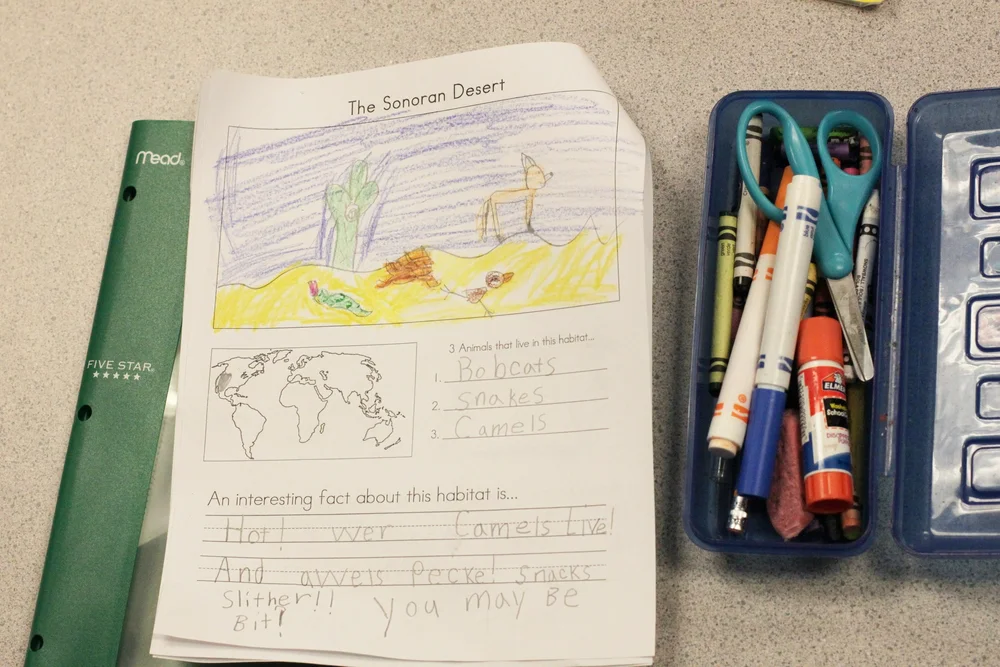 The Sonoran Desert
Mead
FIVE STAR
3 Animals that live in this habitat...
1. Bobcats
2. snakes
3. Camels
An interesting fact about this habitat is...
Hot! wer Camels Live!
And avvels Pecke! Snacks
Slither!! You may Be
Bit!
ELMER'S